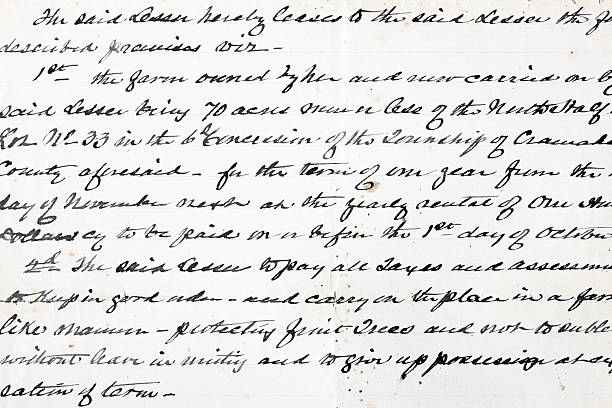 The said Lessor hereby leases to the said Lessee the
described premises viz -
1st the farm owned by her and now carried on by
said Lessee being 70 acres more or less of the North Half of
Lot No 33 in the 6th Concession of the Township of Cramahe
County aforesaid - for the term of one year from the
day of November next at the yearly rental of One
Dollars cy to be paid on or before the 1st day of October
2d The said Lessee to pay all Taxes and assessm
to Keep in good order - and carry on the place in a far
like manner - protecting fruit Trees and not to suble
without leave in writing and to give up possession at
sation of term -